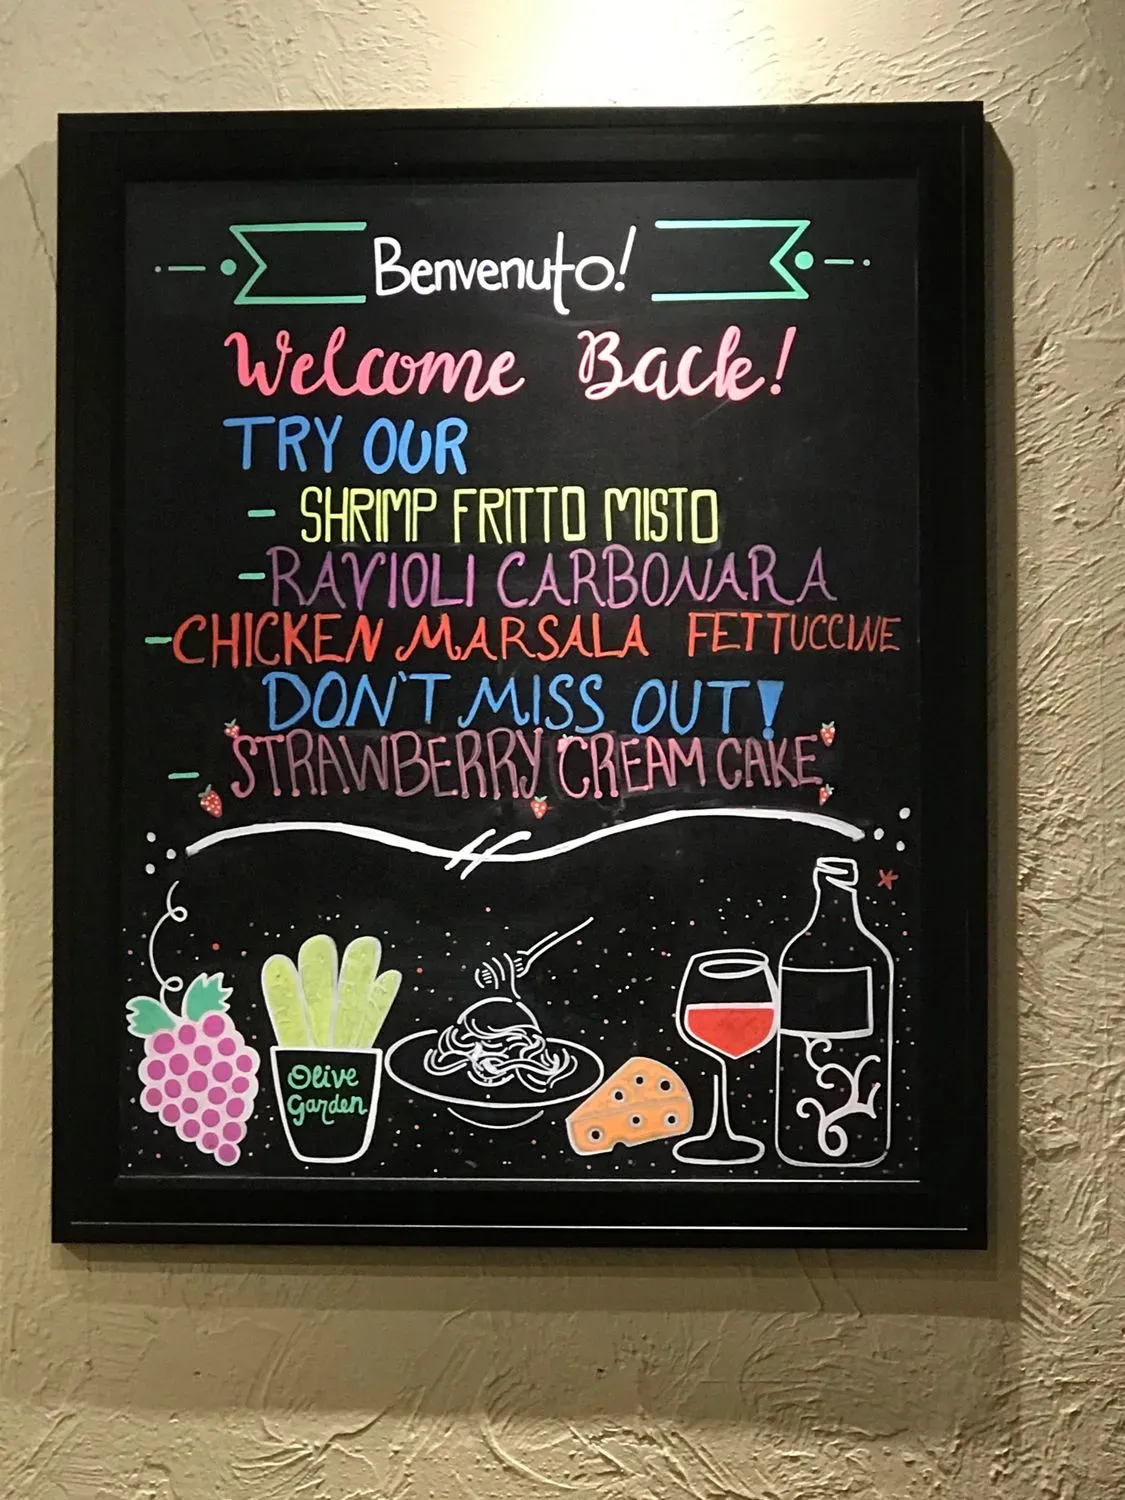 Benvenuto!
Welcome Back!
TRY OUR
- SHRIMP FRITTO MISTO
- RAVIOLI CARBONARA
- CHICKEN MARSALA FETTUCCINE
DON'T MISS OUT!
- STRAWBERRY CREAM CAKE
Olive
Garden